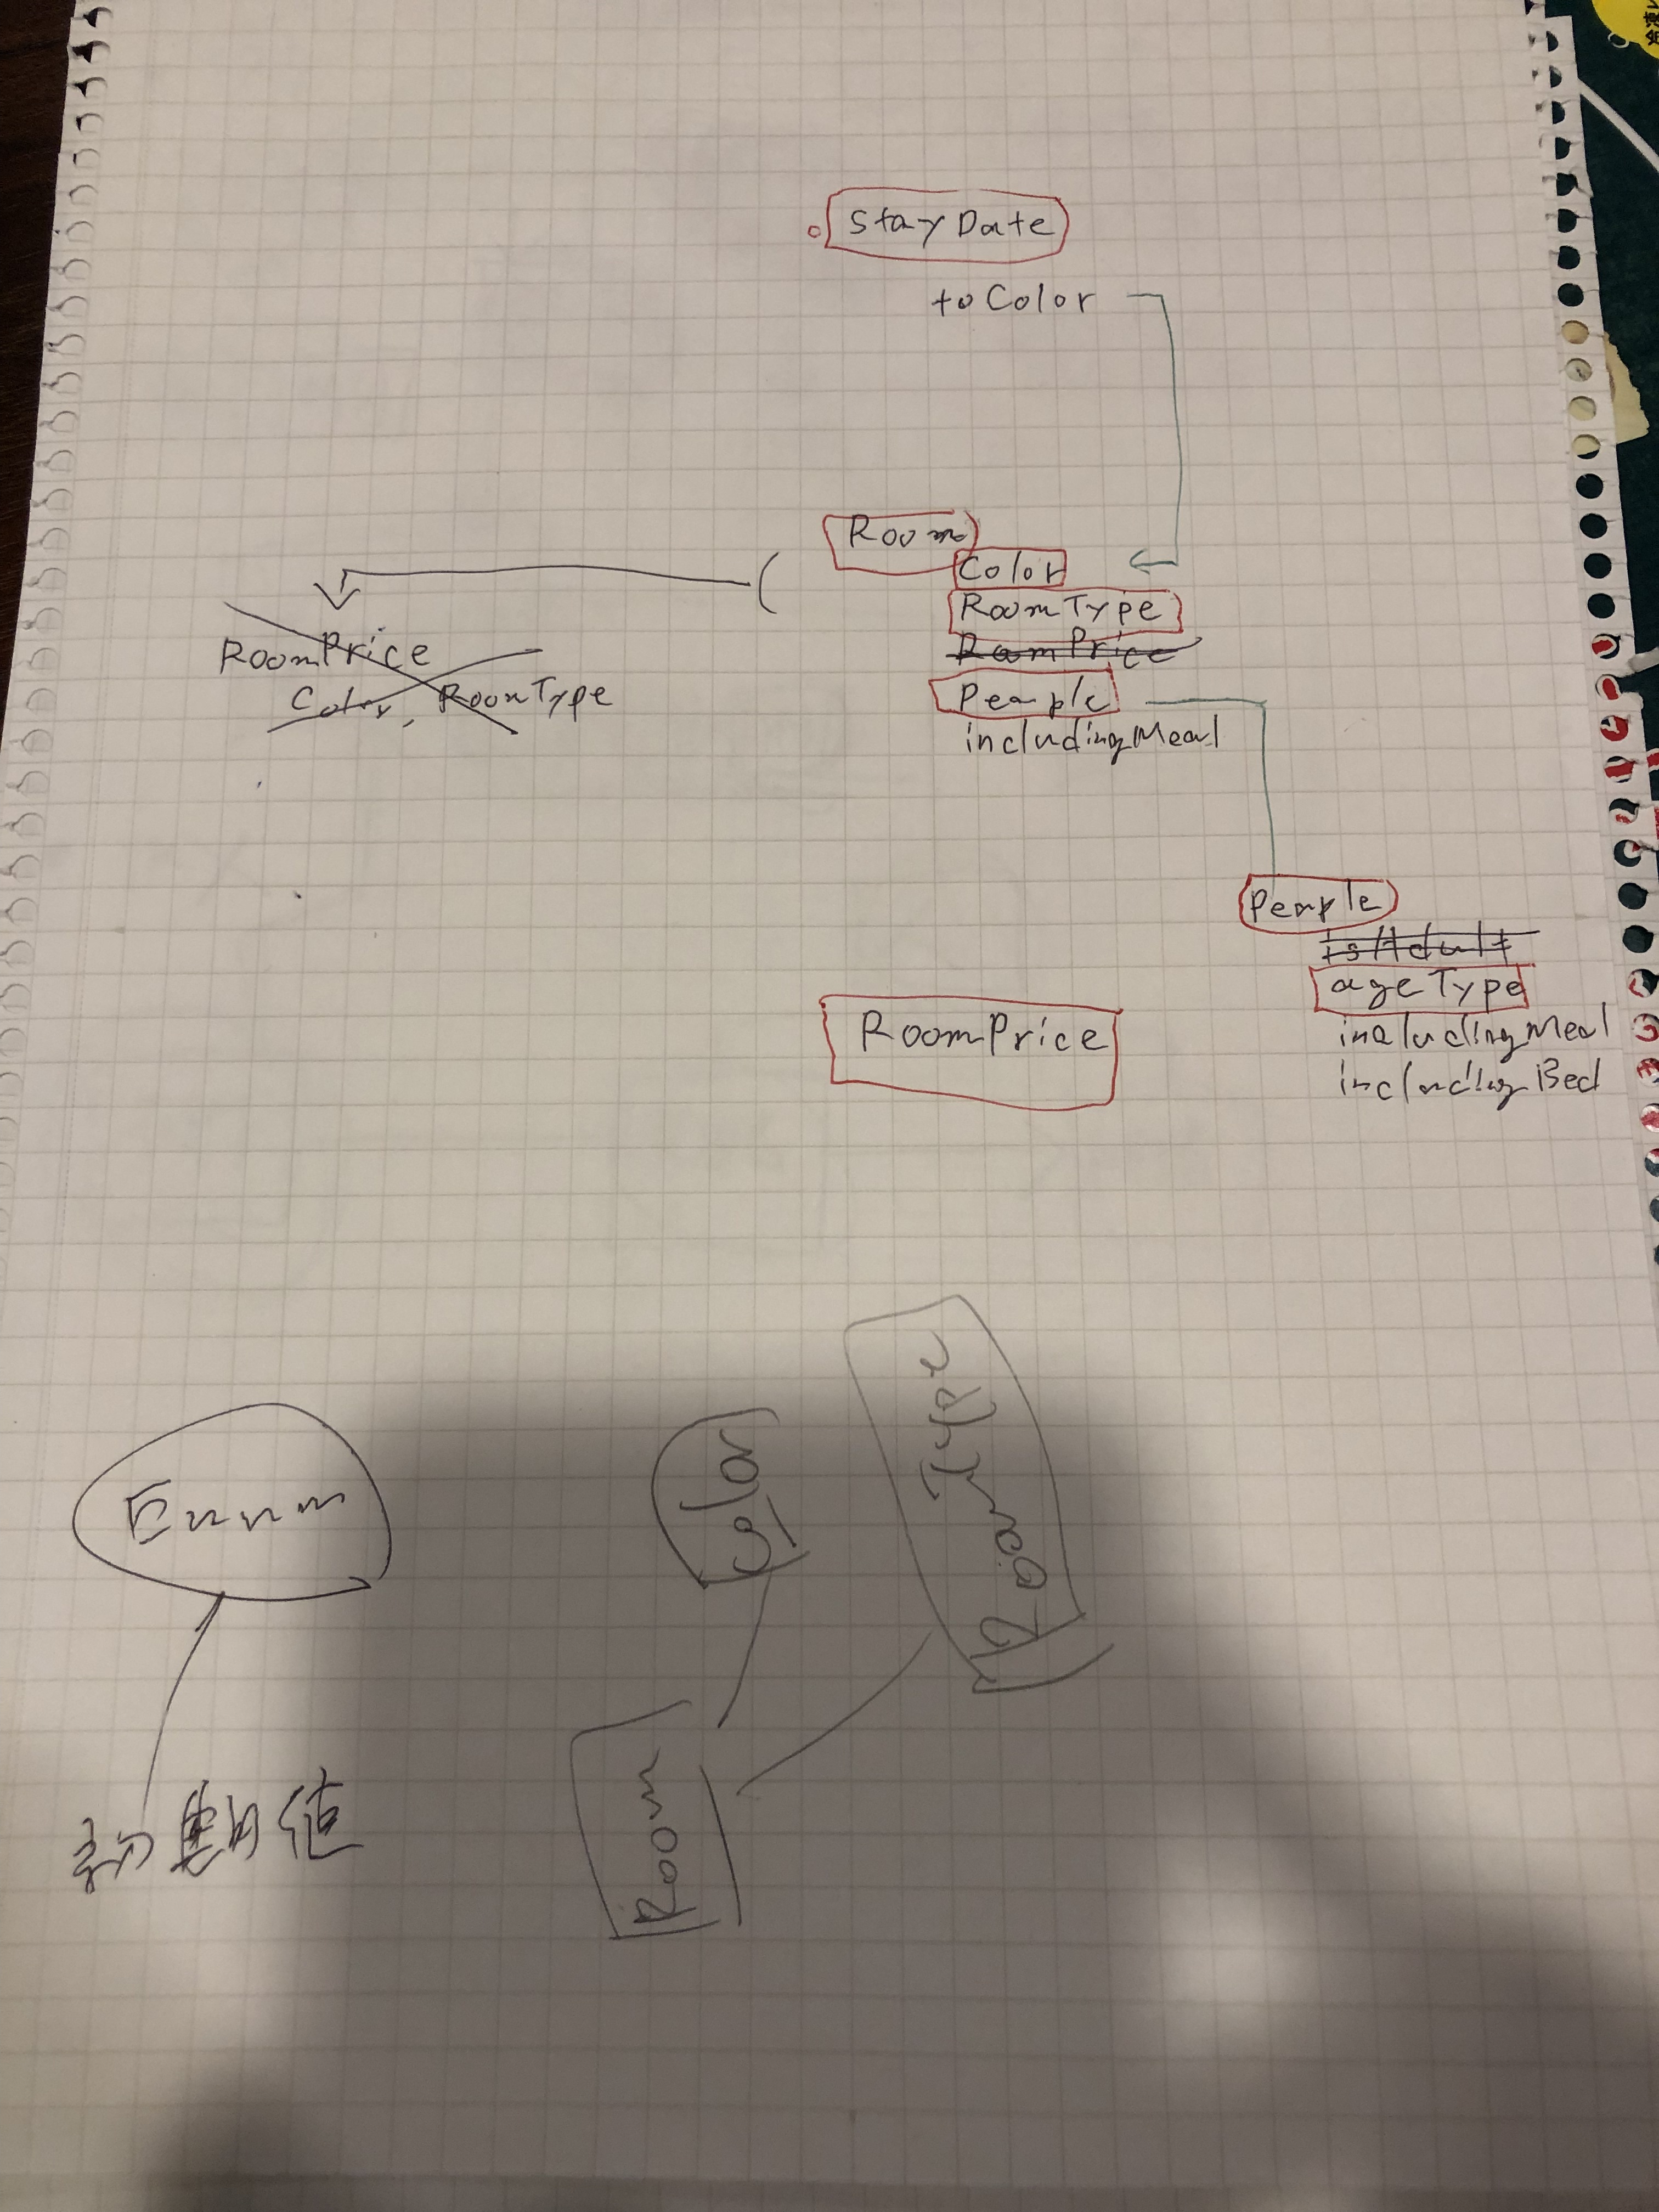 StayDate
toColor
Room
Color
RoomType
RoomPrice
People
includingMeal
RoomPrice
Color, RoomType
People
isAdult
ageType
includingMeal
includingBed
RoomPrice
Enum
初期値
Color
RoomType
Room